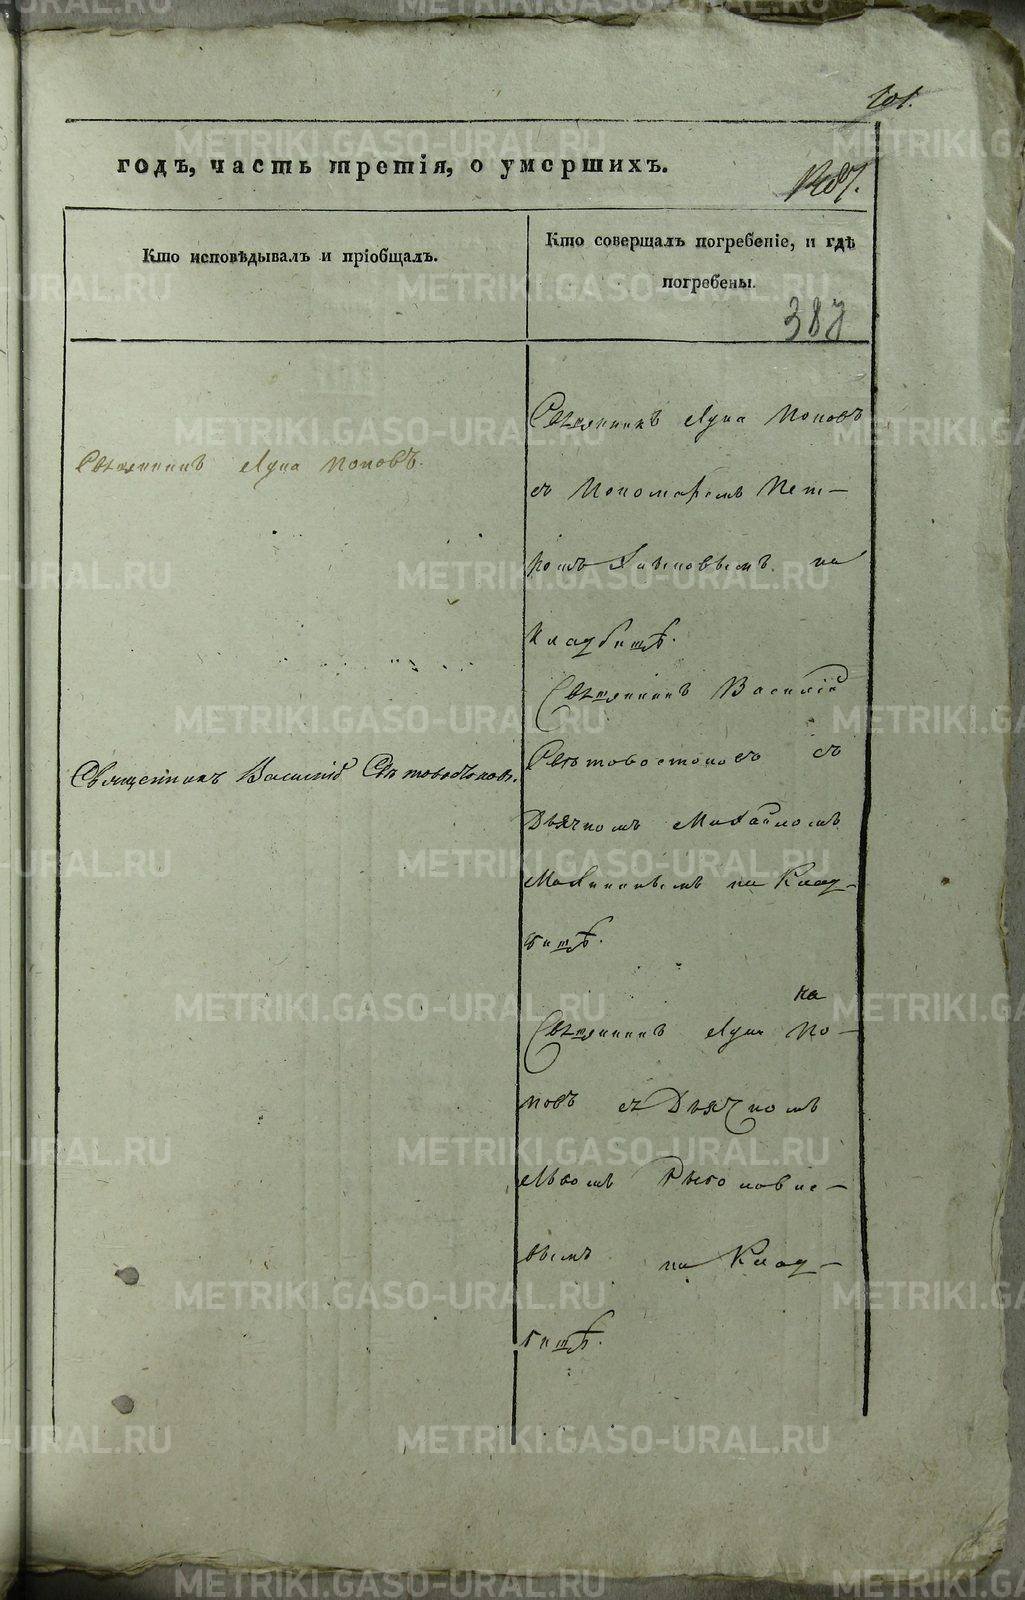 101.
годъ, часть третія, о умершихъ.
1487.
Кто исповѣдывалъ и пріобщалъ.
Кто совершалъ погребеніе, и гдѣ
погребены.
387
Священникъ Лука Поповъ
Священникъ Лука Поповъ.
съ Пономаремъ Пет-
ромъ на
Кладбищѣ.
Священникъ Василій
Священникъ Василій Свѣтовостоковъ.
Свѣтовостоковъ съ
Дьячкомъ Михайломъ
на Клад-
бищѣ.
ка
Священникъ Лука По-
повъ съ Дьячкомъ
Львомъ
вымъ на Клад-
бищѣ.
METRIKI.GASO-URAL.RU